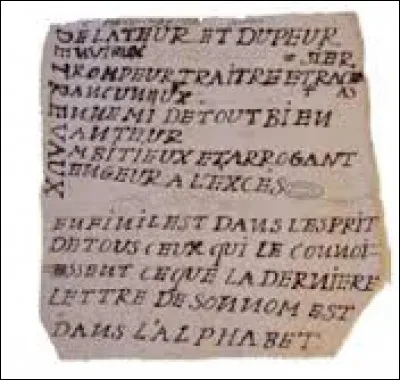 DELATEUR ET DUPEUR
ENVIEUX
TROMPEUR TRAITRE ET
RANCUNEUX
ENNEMI DE TOUT BIEN
VANTEUR
AMBITIEUX ET ARROGANT
VENGEUR A L'EXCES
ENFIN IL EST DANS L'ESPRIT
DE TOUS CEUX QUI LE CONNOI
SSENT CE QUE LA DERNIERE
LETTRE DE SON NOM EST
DANS L'ALPHABET